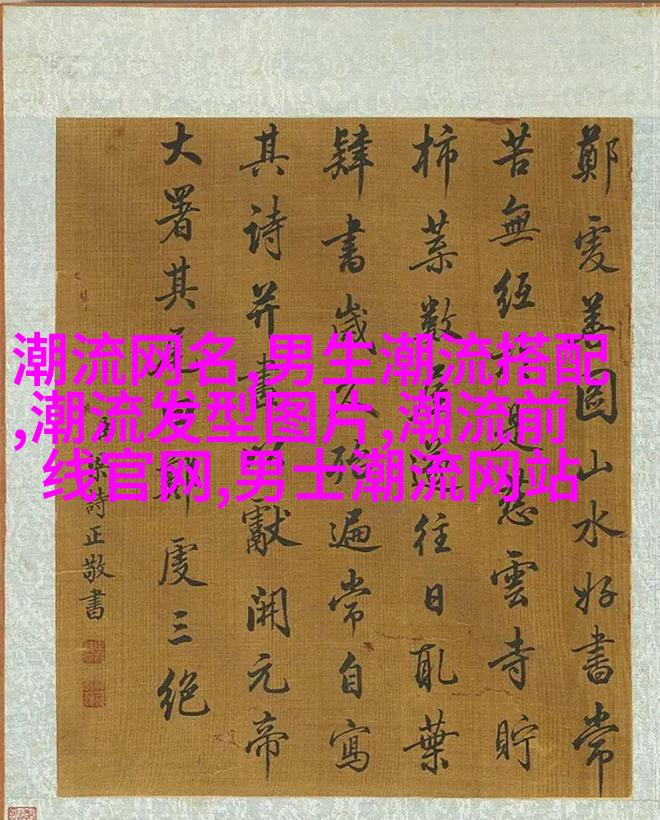 潮流网名,男生潮流搭配
,潮流发型图片,潮流前
线官网,男士潮流网站
鄭虔善圖山水好書常
苦無紙於是慈雲寺貯
柿葉數往日取葉
肄書歲久殆遍常自寫
其詩并畫獻開元帝
大署其鄭虔三絕
梁詩正敬書